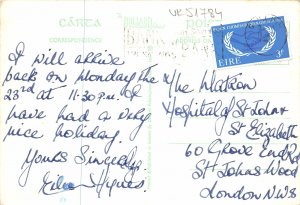 CÁRTA
CORRESPONDENCE
UK51784
ÉIRE 3p
I will arrive
back on Monday the
23rd at 11:30 p.m. I
have had a very
nice holiday.
Yours Sincerely
Eileen Hynes
The Matron
Hospital of St Johns
St Elizabeth
60 Grove End Rd
St Johns Wood
London NW8